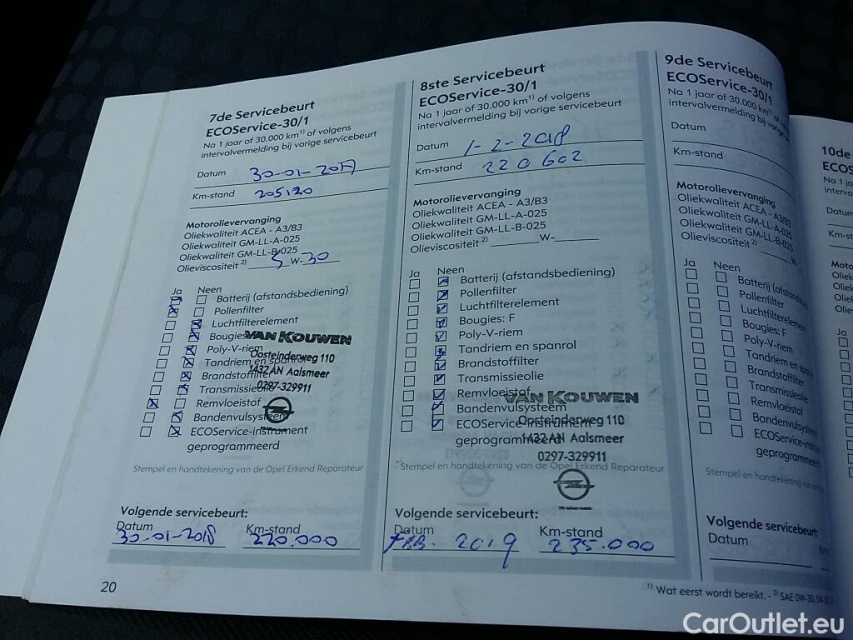 7de Servicebeurt
ECOService-30/1
Na 1 jaar of 30.000 km¹⁾ of volgens
intervalvermelding bij vorige servicebeurt
Datum 30-01-2017
Km-stand 205120
Motorolievervanging
Oliekwaliteit ACEA - A3/B3
Oliekwaliteit GM-LL-A-025
Oliekwaliteit GM-LL-B-025
Olieviscositeit ²⁾ 5 W- 30
Ja Neen
Batterij (afstandsbediening)
Pollenfilter
Luchtfilterelement
Bougies
Poly-V-riem
Tandriem en spanrol
Brandstoffilter
Transmissieolie
Remvloeistof
Bandenvulsysteem
ECOService-instrument
geprogrammeerd
VAN KOUWEN
Oosteinderweg 110
1432 AN Aalsmeer
0297-329911
Stempel en handtekening van de Opel Erkend Reparateur
Volgende servicebeurt:
Datum Km-stand
30-01-2018 220.000
20
8ste Servicebeurt
ECOService-30/1
Na 1 jaar of 30.000 km¹⁾ of volgens
intervalvermelding bij vorige servicebeurt
Datum 1-2-2018
Km-stand 220602
Motorolievervanging
Oliekwaliteit ACEA - A3/B3
Oliekwaliteit GM-LL-A-025
Oliekwaliteit GM-LL-B-025
Olieviscositeit ²⁾ W-
Ja Neen
Batterij (afstandsbediening)
Pollenfilter
Luchtfilterelement
Bougies: F
Poly-V-riem
Tandriem en spanrol
Brandstoffilter
Transmissieolie
Remvloeistof
Bandenvulsysteem
ECOService-instrument
geprogrammeerd
VAN KOUWEN
Oosteinderweg 110
1432 AN Aalsmeer
0297-329911
Stempel en handtekening van de Opel Erkend Reparateur
Volgende servicebeurt:
Datum Km-stand
Feb. 2019 235.000
9de Servicebeurt
ECOService-30/1
Na 1 jaar of 30.000 km¹⁾ of
intervalvermelding bij vorige
Datum
Km-stand
Motorolievervanging
Oliekwaliteit ACEA - A3/B3
Oliekwaliteit GM-LL-A-025
Oliekwaliteit GM-LL-B-025
Olieviscositeit ²⁾ W-
Ja Neen
Batterij (afstands
Pollenfilter
Luchtfilterelement
Bougies: F
Poly-V-riem
Tandriem en spanrol
Brandstoffilter
Transmissieolie
Remvloeistof
Bandenvulsysteem
ECOService-ins
geprogrammeerd
Stempel en handtekening van
Volgende servicebeurt
Datum
¹⁾ Wat eerst wordt bereikt. - ²⁾ SAE 0W-30, 5W
10de
ECOS
Na 1 ja
interva
Datum
Km-st
CarOutlet.eu